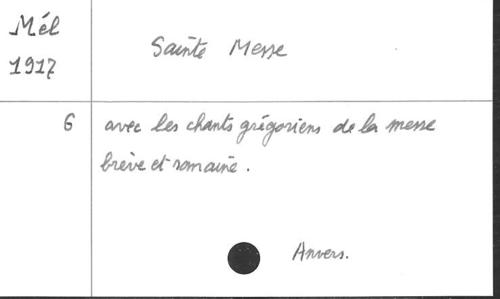 Mél
1917
Sainte Messe
6
avec les chants grégoriens de la messe
brève et romaine.
Anvers.